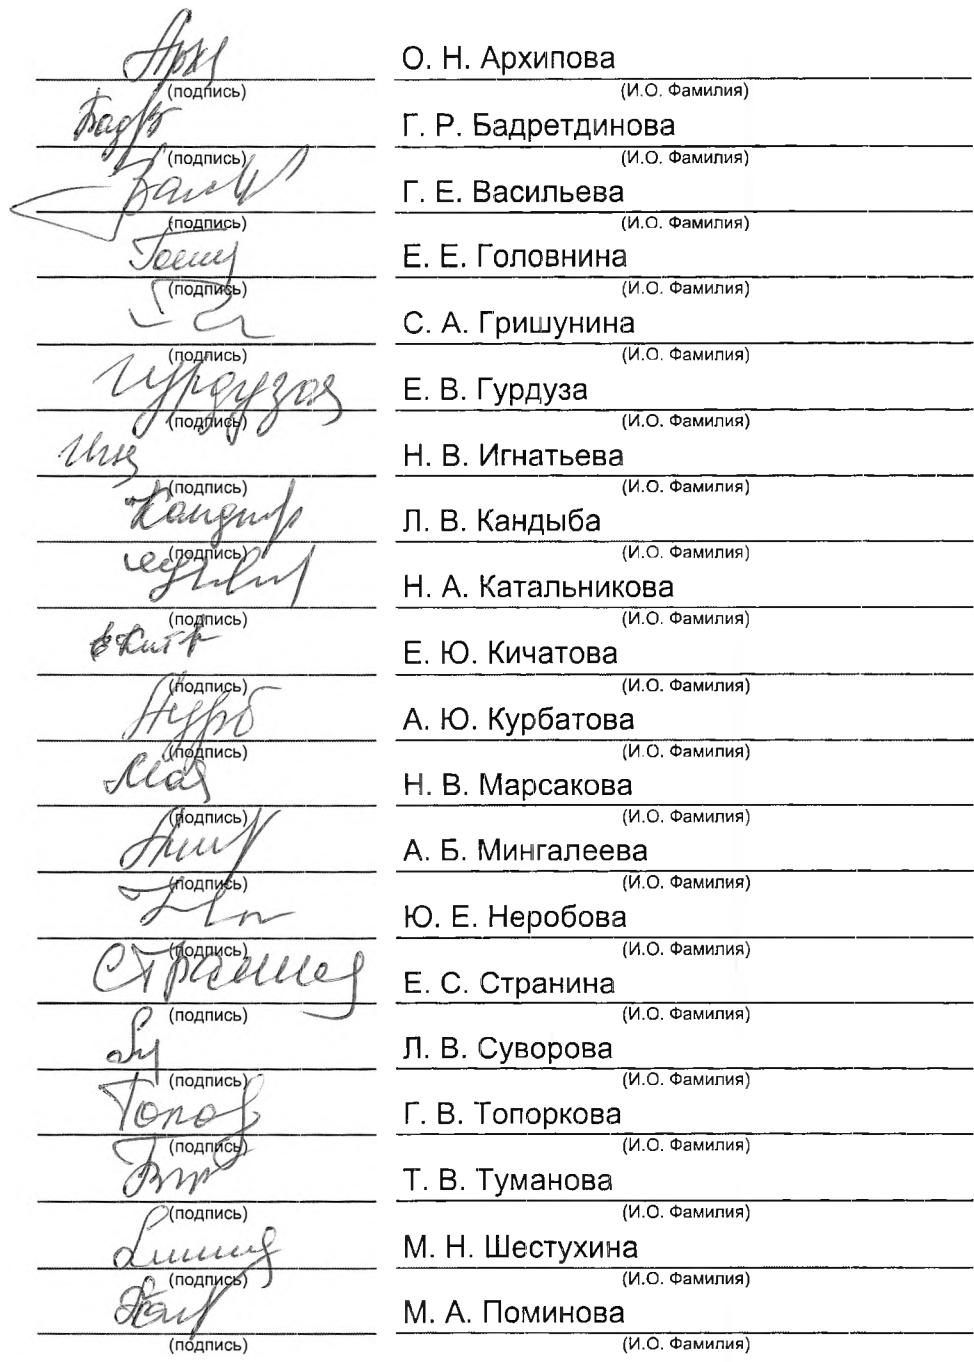 О. Н. Архипова
(подпись) (И.О. Фамилия)
Г. Р. Бадретдинова
(подпись) (И.О. Фамилия)
Г. Е. Васильева
(подпись) (И.О. Фамилия)
Е. Е. Головнина
(подпись) (И.О. Фамилия)
С. А. Гришунина
(подпись) (И.О. Фамилия)
Е. В. Гурдуза
(подпись) (И.О. Фамилия)
Н. В. Игнатьева
(подпись) (И.О. Фамилия)
Л. В. Кандыба
(подпись) (И.О. Фамилия)
Н. А. Катальникова
(подпись) (И.О. Фамилия)
Е. Ю. Кичатова
(подпись) (И.О. Фамилия)
А. Ю. Курбатова
(подпись) (И.О. Фамилия)
Н. В. Марсакова
(подпись) (И.О. Фамилия)
А. Б. Мингалеева
(подпись) (И.О. Фамилия)
Ю. Е. Неробова
(подпись) (И.О. Фамилия)
Е. С. Странина
(подпись) (И.О. Фамилия)
Л. В. Суворова
(подпись) (И.О. Фамилия)
Г. В. Топоркова
(подпись) (И.О. Фамилия)
Т. В. Туманова
(подпись) (И.О. Фамилия)
М. Н. Шестухина
(подпись) (И.О. Фамилия)
М. А. Поминова
(подпись) (И.О. Фамилия)